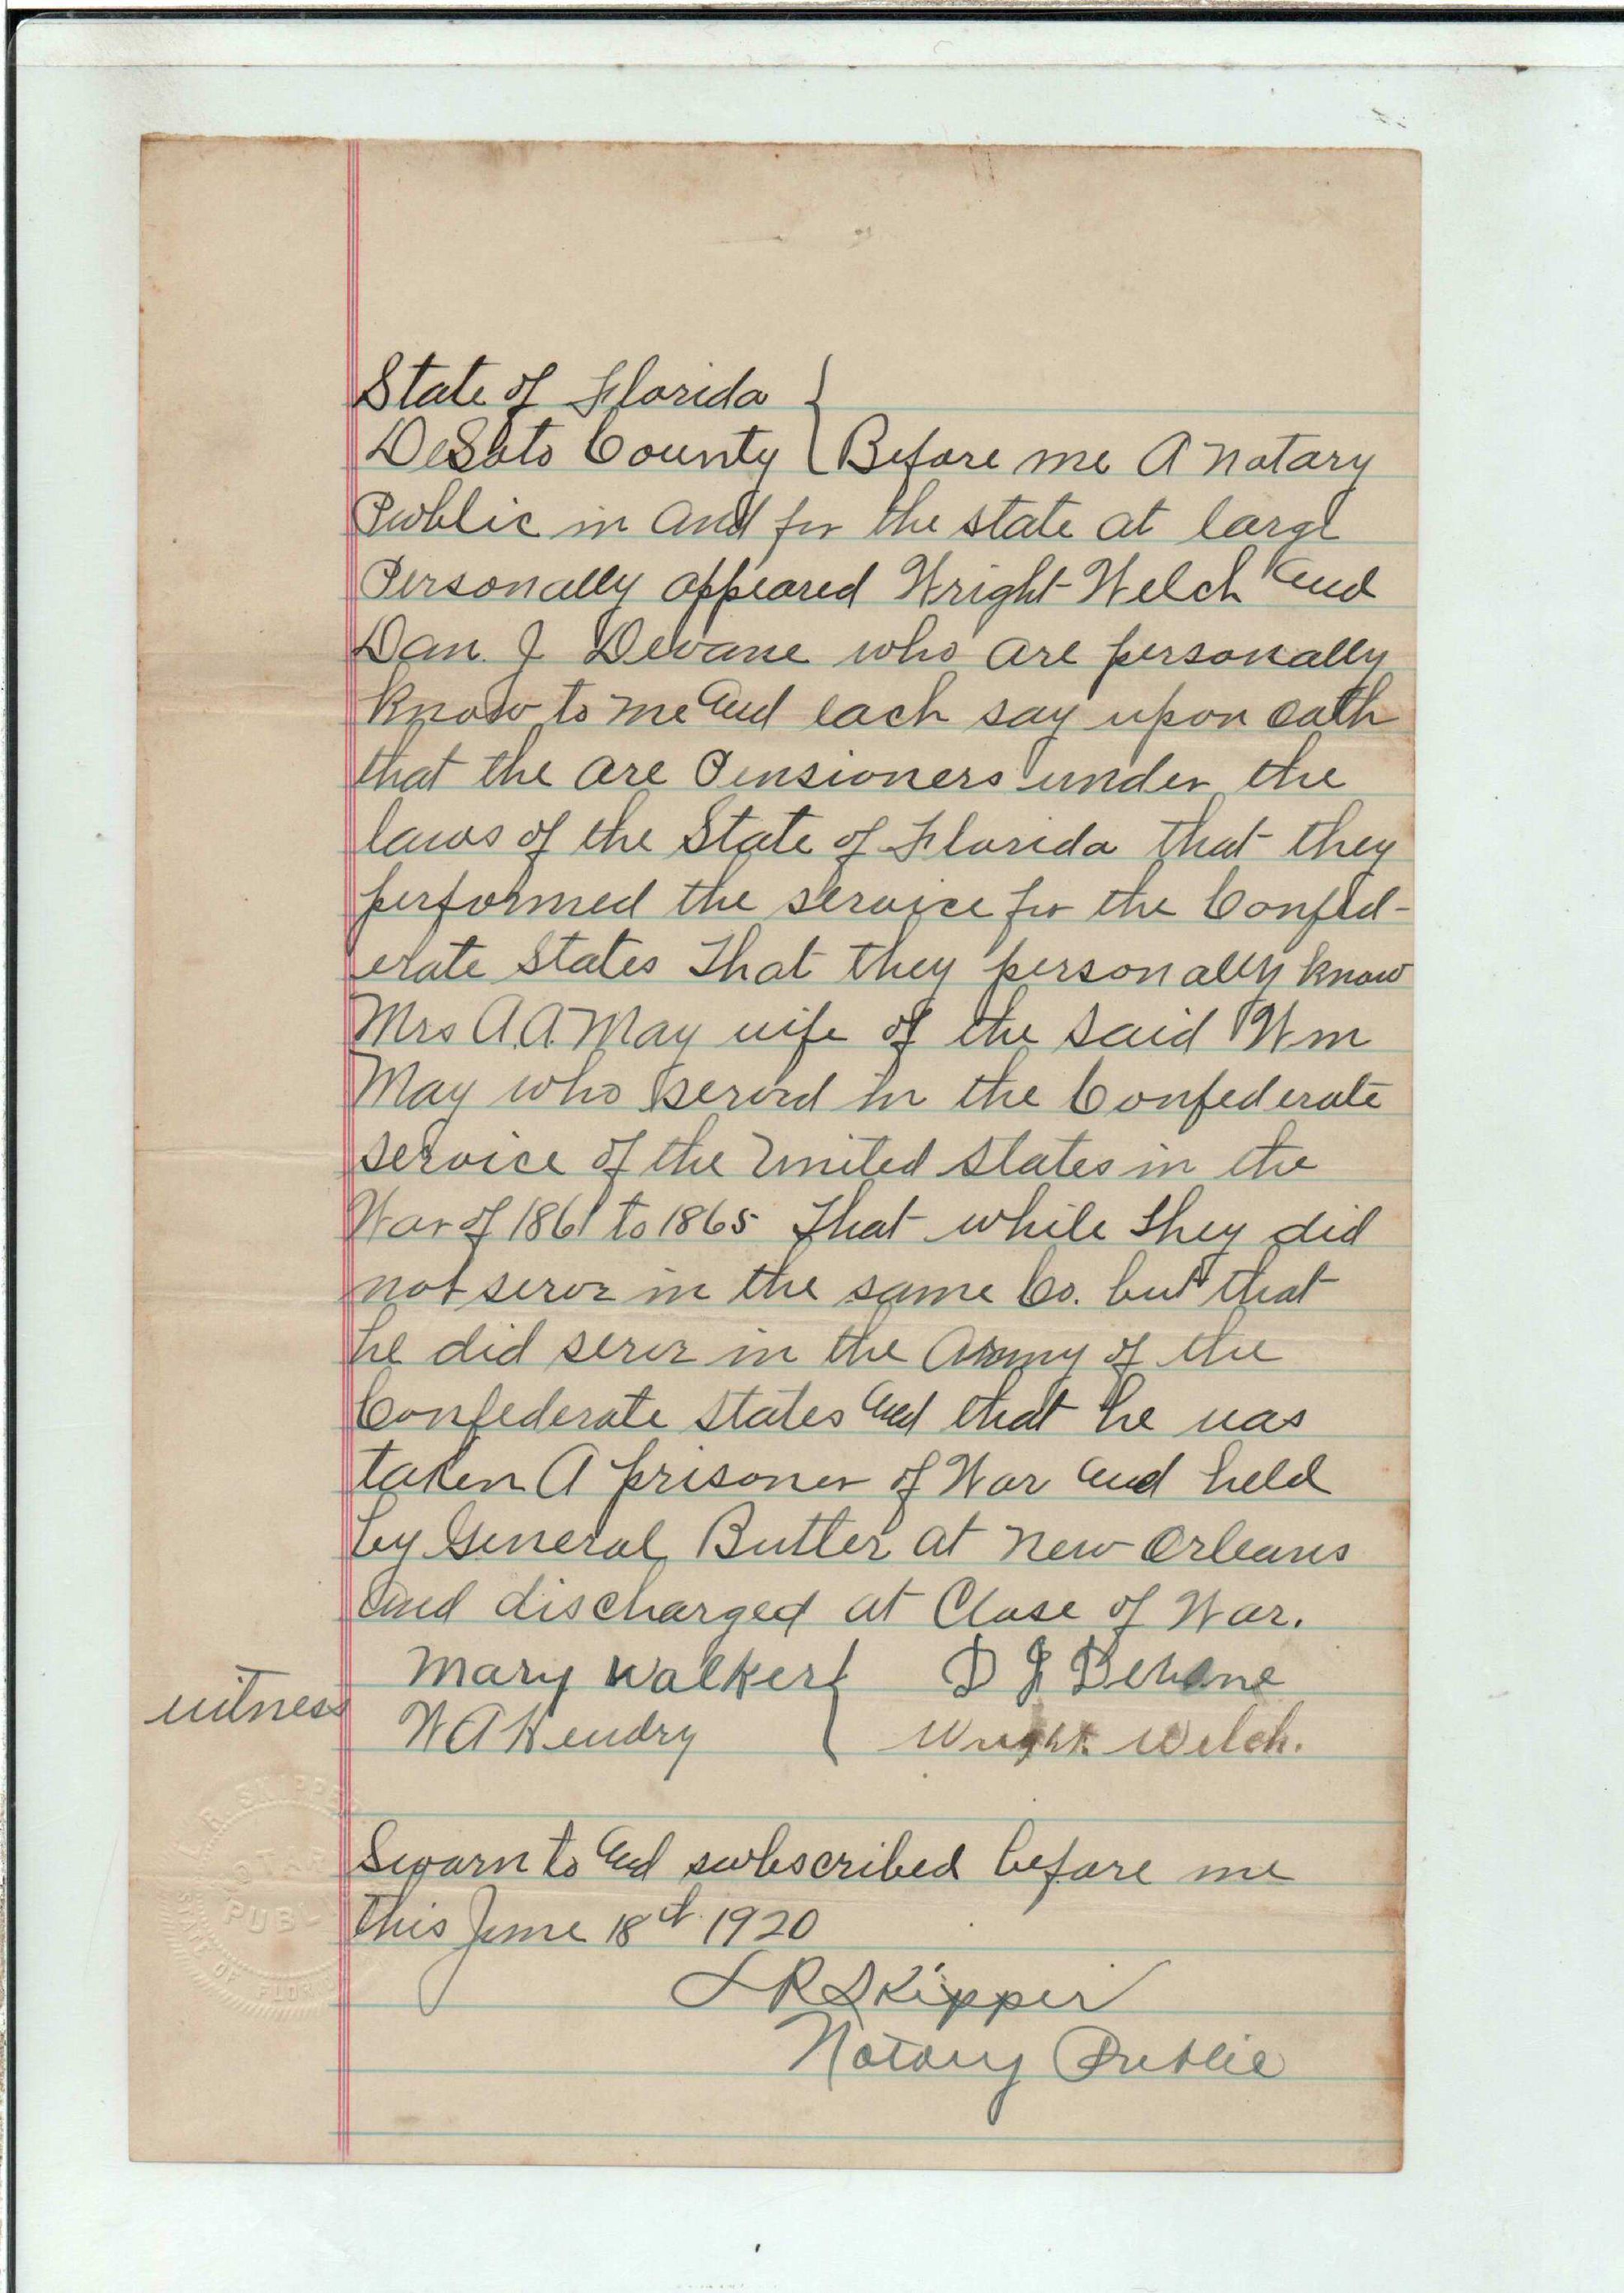 State of Florida }
DeSoto County { Before me A Notary
Public in And for the state at large
Personally appeared Wright Welch And
Dan. J Devane who are personally
know to me And each say upon oath
that the are Pensioners under the
laws of the State of Florida that they
performed the service for the Confed-
erate States That they personally know
Mrs A.A. May wife of the said Wm
May who served in the Confederate
service of the United States in the
War of 1861 to 1865 That while they did
not serve in the same Co. but that
he did serve in the Army of the
Confederate States And that he was
taken A prisoner of War And held
by General Butler at New Orleans
And discharged at Close of War.
Mary Walker } D J Devane
witness W A Hendry } Wright Welch.
Sworn to And subscribed before me
this June 18th 1920
L R Skipper
Notary Public
L. R. SKIPPER
NOTARY
PUBLIC
STATE OF FLORIDA